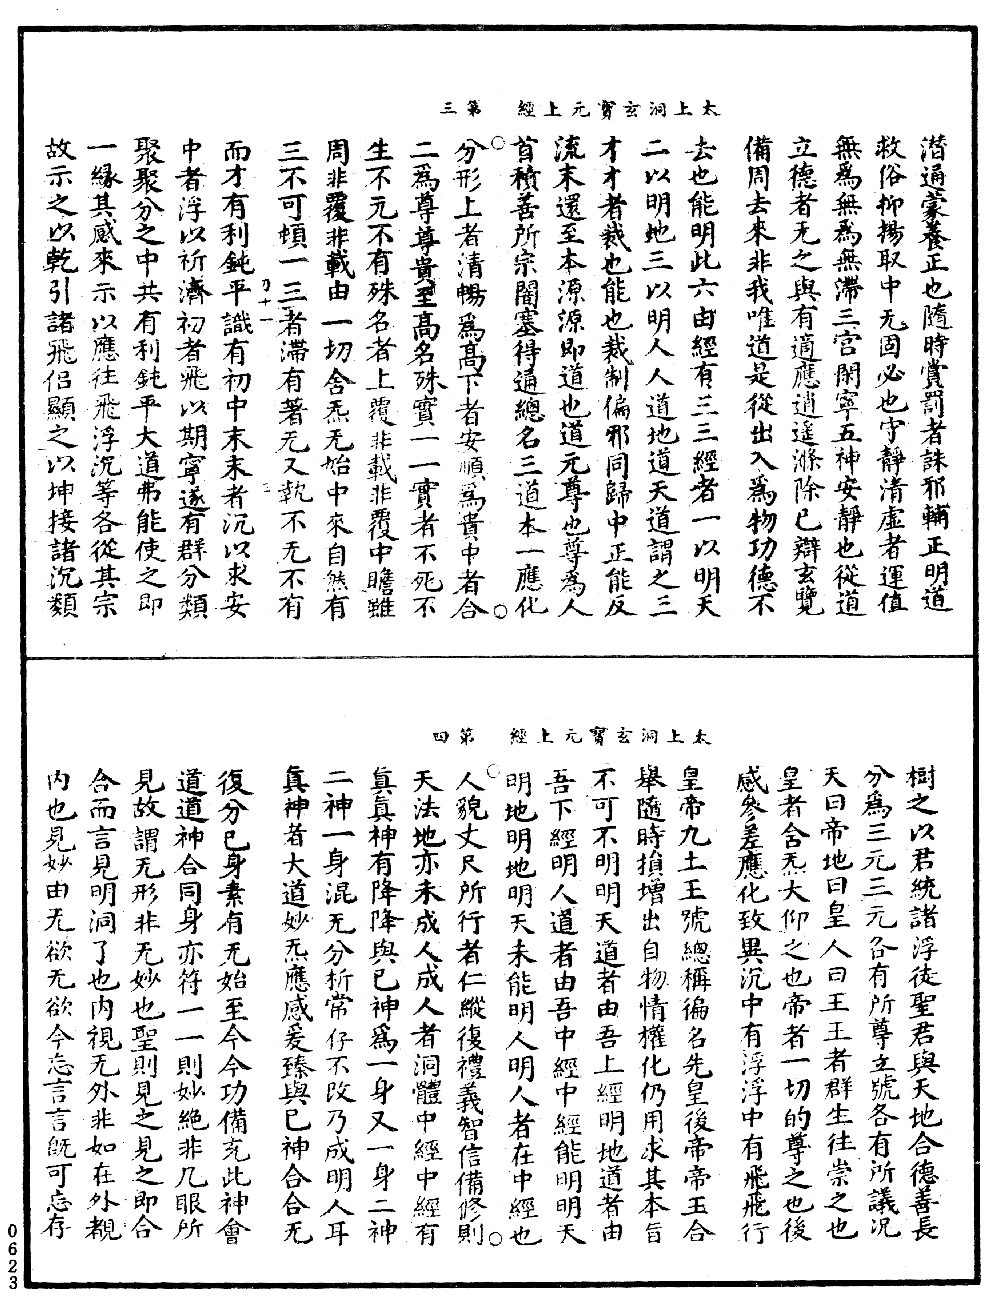 太上洞玄寶元上經　第三
潛通蒙養正也隨時賞罰者誅邪輔正明道
救俗抑揚取中无固必也守靜清虛者運值
無爲無爲無滯三宮閑寧五神安靜也從道
立德者无之與有適應逍遥滌除已辯玄覽
備周去來非我唯道是從出入爲物功德不
去也能明此六由經有三三經者一以明天
二以明地三以明人人道地道天道謂之三
才才者裁也能也裁制偏邪同歸中正能反
流末還至本源源即道也道元尊也尊爲人
首積善所宗闇塞得通總名三道本一應化
分形上者清暢爲高下者安順爲貴中者合
二爲尊尊貴至高名殊實一一實者不死不
生不元不有殊名者上覆非載非覆中瞻雖
周非覆非載由一切含炁无始中來自然有
三不可頓一三者滯有著无又執不无不有
而才有利鈍平識有初中末末者沉以求安
中者浮以祈濟初者飛以期寧遂有群分類
聚聚分之中共有利鈍平大道弗能使之即
一緣其感來示以應往飛浮沉等各從其宗
故示之以乾引諸飛侣顯之以坤接諸沉類
太上洞玄寶元上經　第四
樹之以君統諸浮徒聖君與天地合德善長
分爲三元三元各有所尊立號各有所議況
天曰帝地曰皇人曰王王者群生往崇之也
皇者含炁大仰之也帝者一切的尊之也後
感參差應化致異沉中有浮浮中有飛飛行
皇帝九土王號總稱徧名先皇後帝帝王合
舉隨時損增出自物情權化仍用求其本旨
不可不明明天道者由吾上經明地道者由
吾下經明人道者由吾中經中經能明明天
明地明地明天未能明人明人者在中經也
人貌丈尺所行者仁縱復禮義智信備修則
天法地亦未成人成人者洞體中經中經有
真真神有降降與已神爲一身又一身二神
二神一身混无分析常仔不改乃成明人耳
真神者大道妙炁應感爰臻與已神合合无
復分已身素有无始至今今功備充此神會
道道神合同身亦符一一則妙絶非凡眼所
見故謂无形非无妙也聖則見之見之即合
合而言見明洞了也内視无外非如在外覩
内也見妙由无欲无欲今忘言言旣可忘存
0623